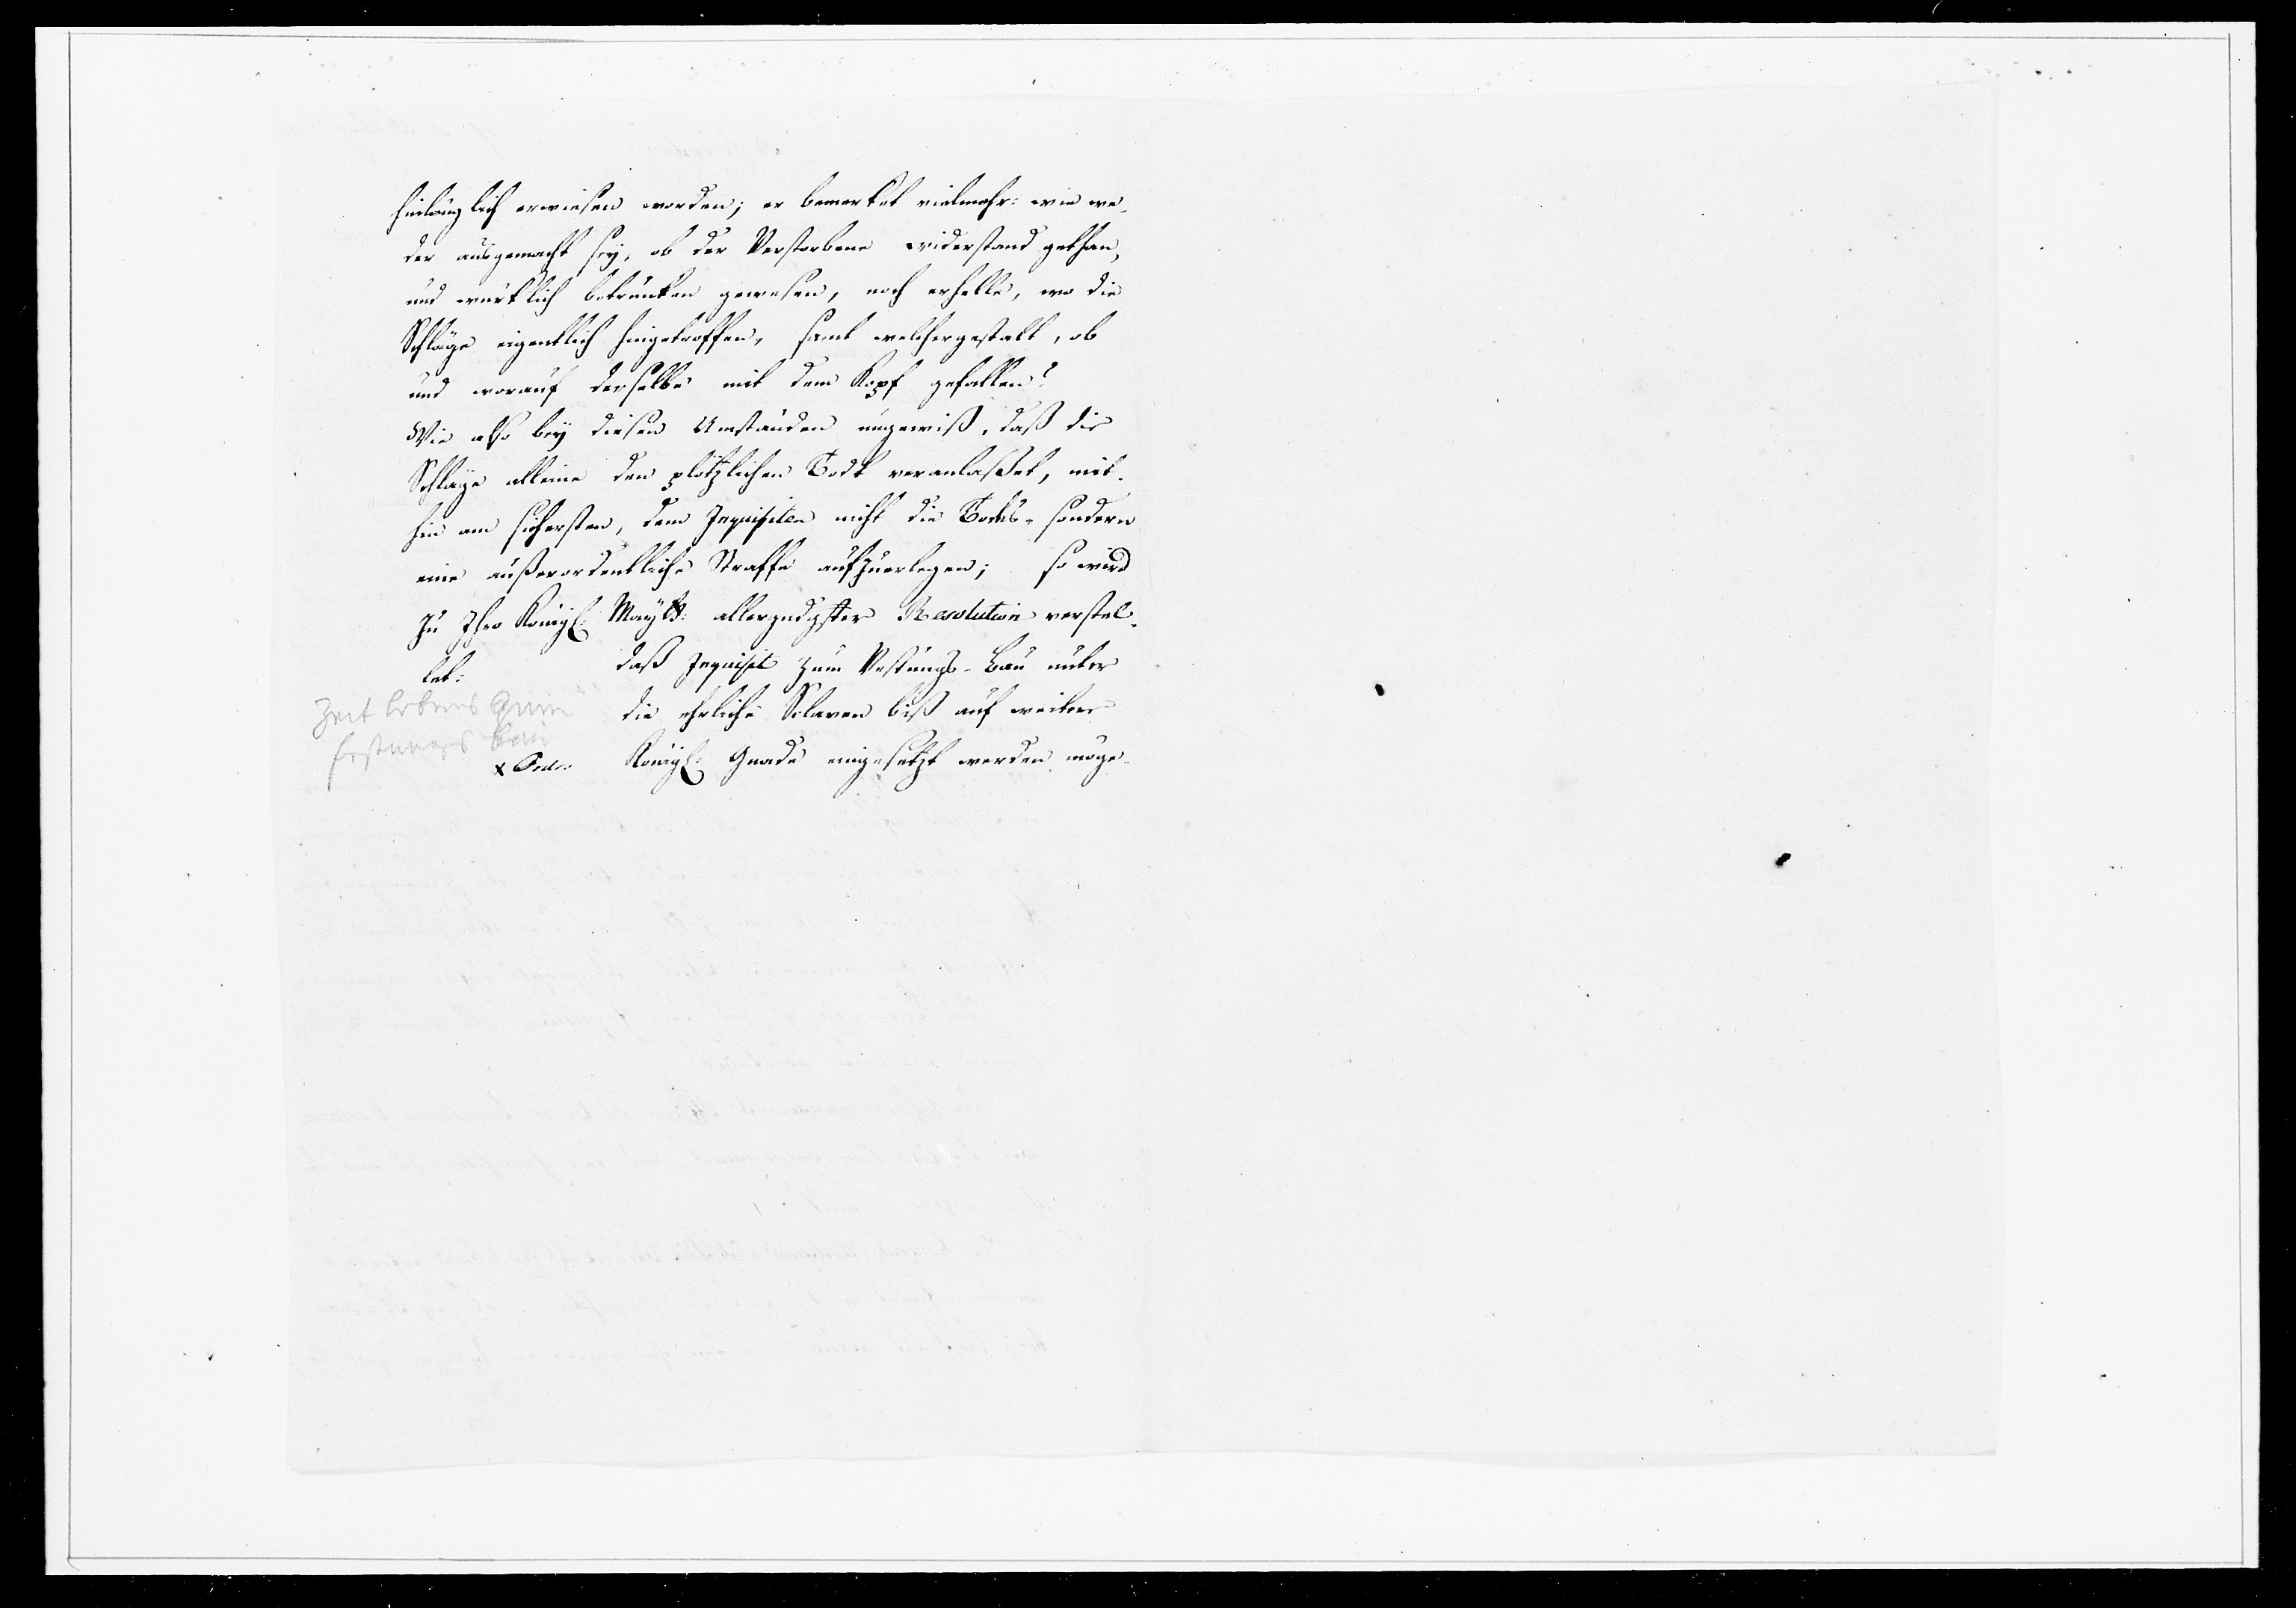 hinlänglich erwiesen worden; er bemerket vielmehr: wie we-
der ausgemacht sey, ob der Verstorbene widerstand gethan,
und würklich betrunken gewesen, noch erhelle, wo die
Schläge eigentlich hingetroffen, samt welchergestalt, ob
und worauf derselbe mit dem Kopf gefallen?
Wie also bey diesen Umständen ungewiß, daß die
Schläge alleine den plötzlichen Todt veranlaßet, mit-
hin am sichersten, dem Inquisiten nicht die Todes- sondern
eine außerordentliche Straffe aufzuerlegen; so wird
zu Ihro Königl: Mayt: allergndgster Resolution verstel-
let: daß Inquisit zum Vestungs-Bau unter
die ehrliche Sclaven biß auf weitere
Königl: Gnade eingesetzt werden möge.
Zeit lebens zum
festungs bau
x Order